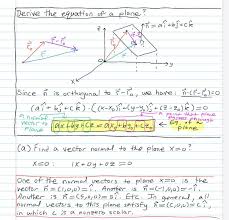 Derive the equation of a plane?
n⃗=ai⃗+bj⃗+ck⃗
Since n⃗ is orthogonal to r⃗-r⃗₀, we have: n⃗·(r⃗-r⃗₀)=0
(ai⃗+bj⃗+ck⃗)·((x-x₀)i⃗+(y-y₀)j⃗+(z-z₀)k⃗)=0
a normal vector to plane
ax+by+cz=ax₀+by₀+cz₀
Eq. of a plane
(a) Find a vector normal to the plane x=0?
x=0: 1x+0y+0z=0
One of the normal vectors to plane x=0 is the
vector n⃗=(1,0,0)=i⃗. Another is n⃗=(-1,0,0)=-i⃗.
Another is n⃗=(5,0,0)=5i⃗. Etc. In general, all
normal vectors to this plane satisfy n⃗=(c,0,0)=ci⃗,
in which c is a nonzero scalar.